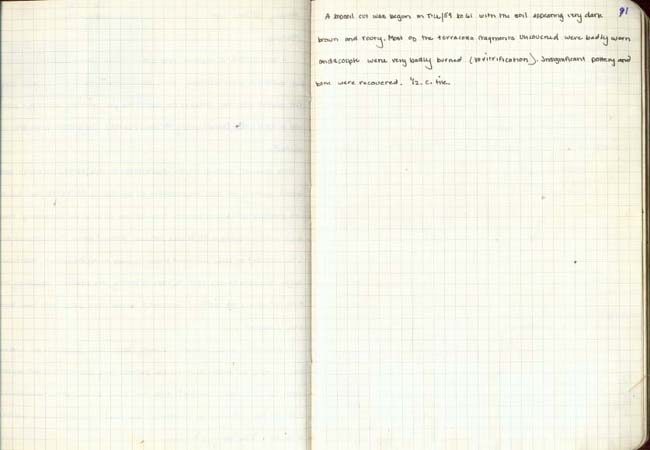 91
A topsoil cut was begun in T42/59 to 61 with the soil appearing very dark
brown and rooty. Most of the terracotta fragments uncovered were badly worn
and a couple were very badly burned (to vitrification). Insignificant pottery and
bone were recovered. 1/2 c. tile.